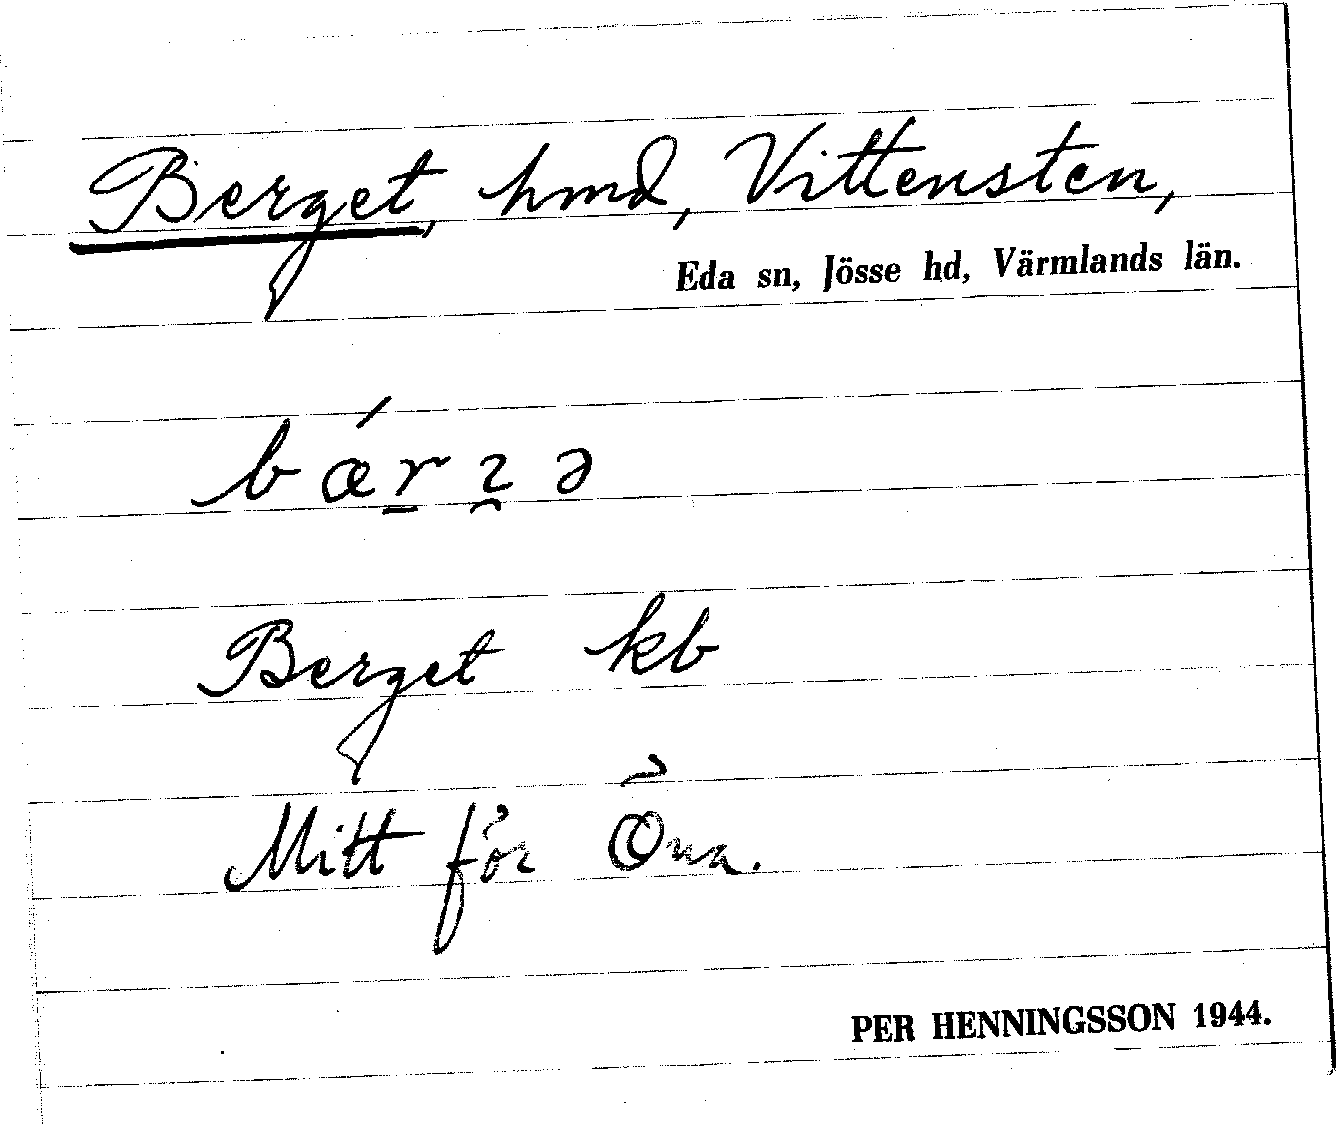 Berget, hmd, Vittensten,
Eda sn, Jösse hd, Värmlands län.
bǽr̠ɿ̯ə
Berget kb
Mitt för Öna.
PER HENNINGSSON 1944.